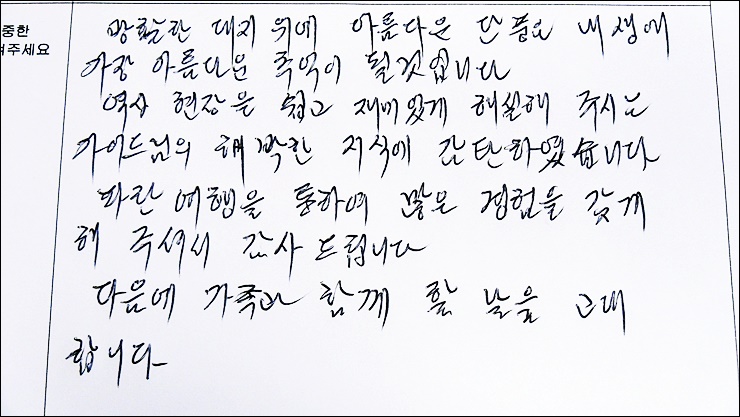 중한
겨주세요
광활한 대지 위에 아름다운 단풍은 내 생애
가장 아름다운 추억이 될것입니다
역사 현장을 쉽고 재미있게 해설해 주시는
가이드님의 해박한 지식에 감탄하였습니다
파란 여행을 통하여 많은 경험을 갖게
해 주셔서 감사 드립니다
다음에 가족과 함께 할 날을 고대
합니다